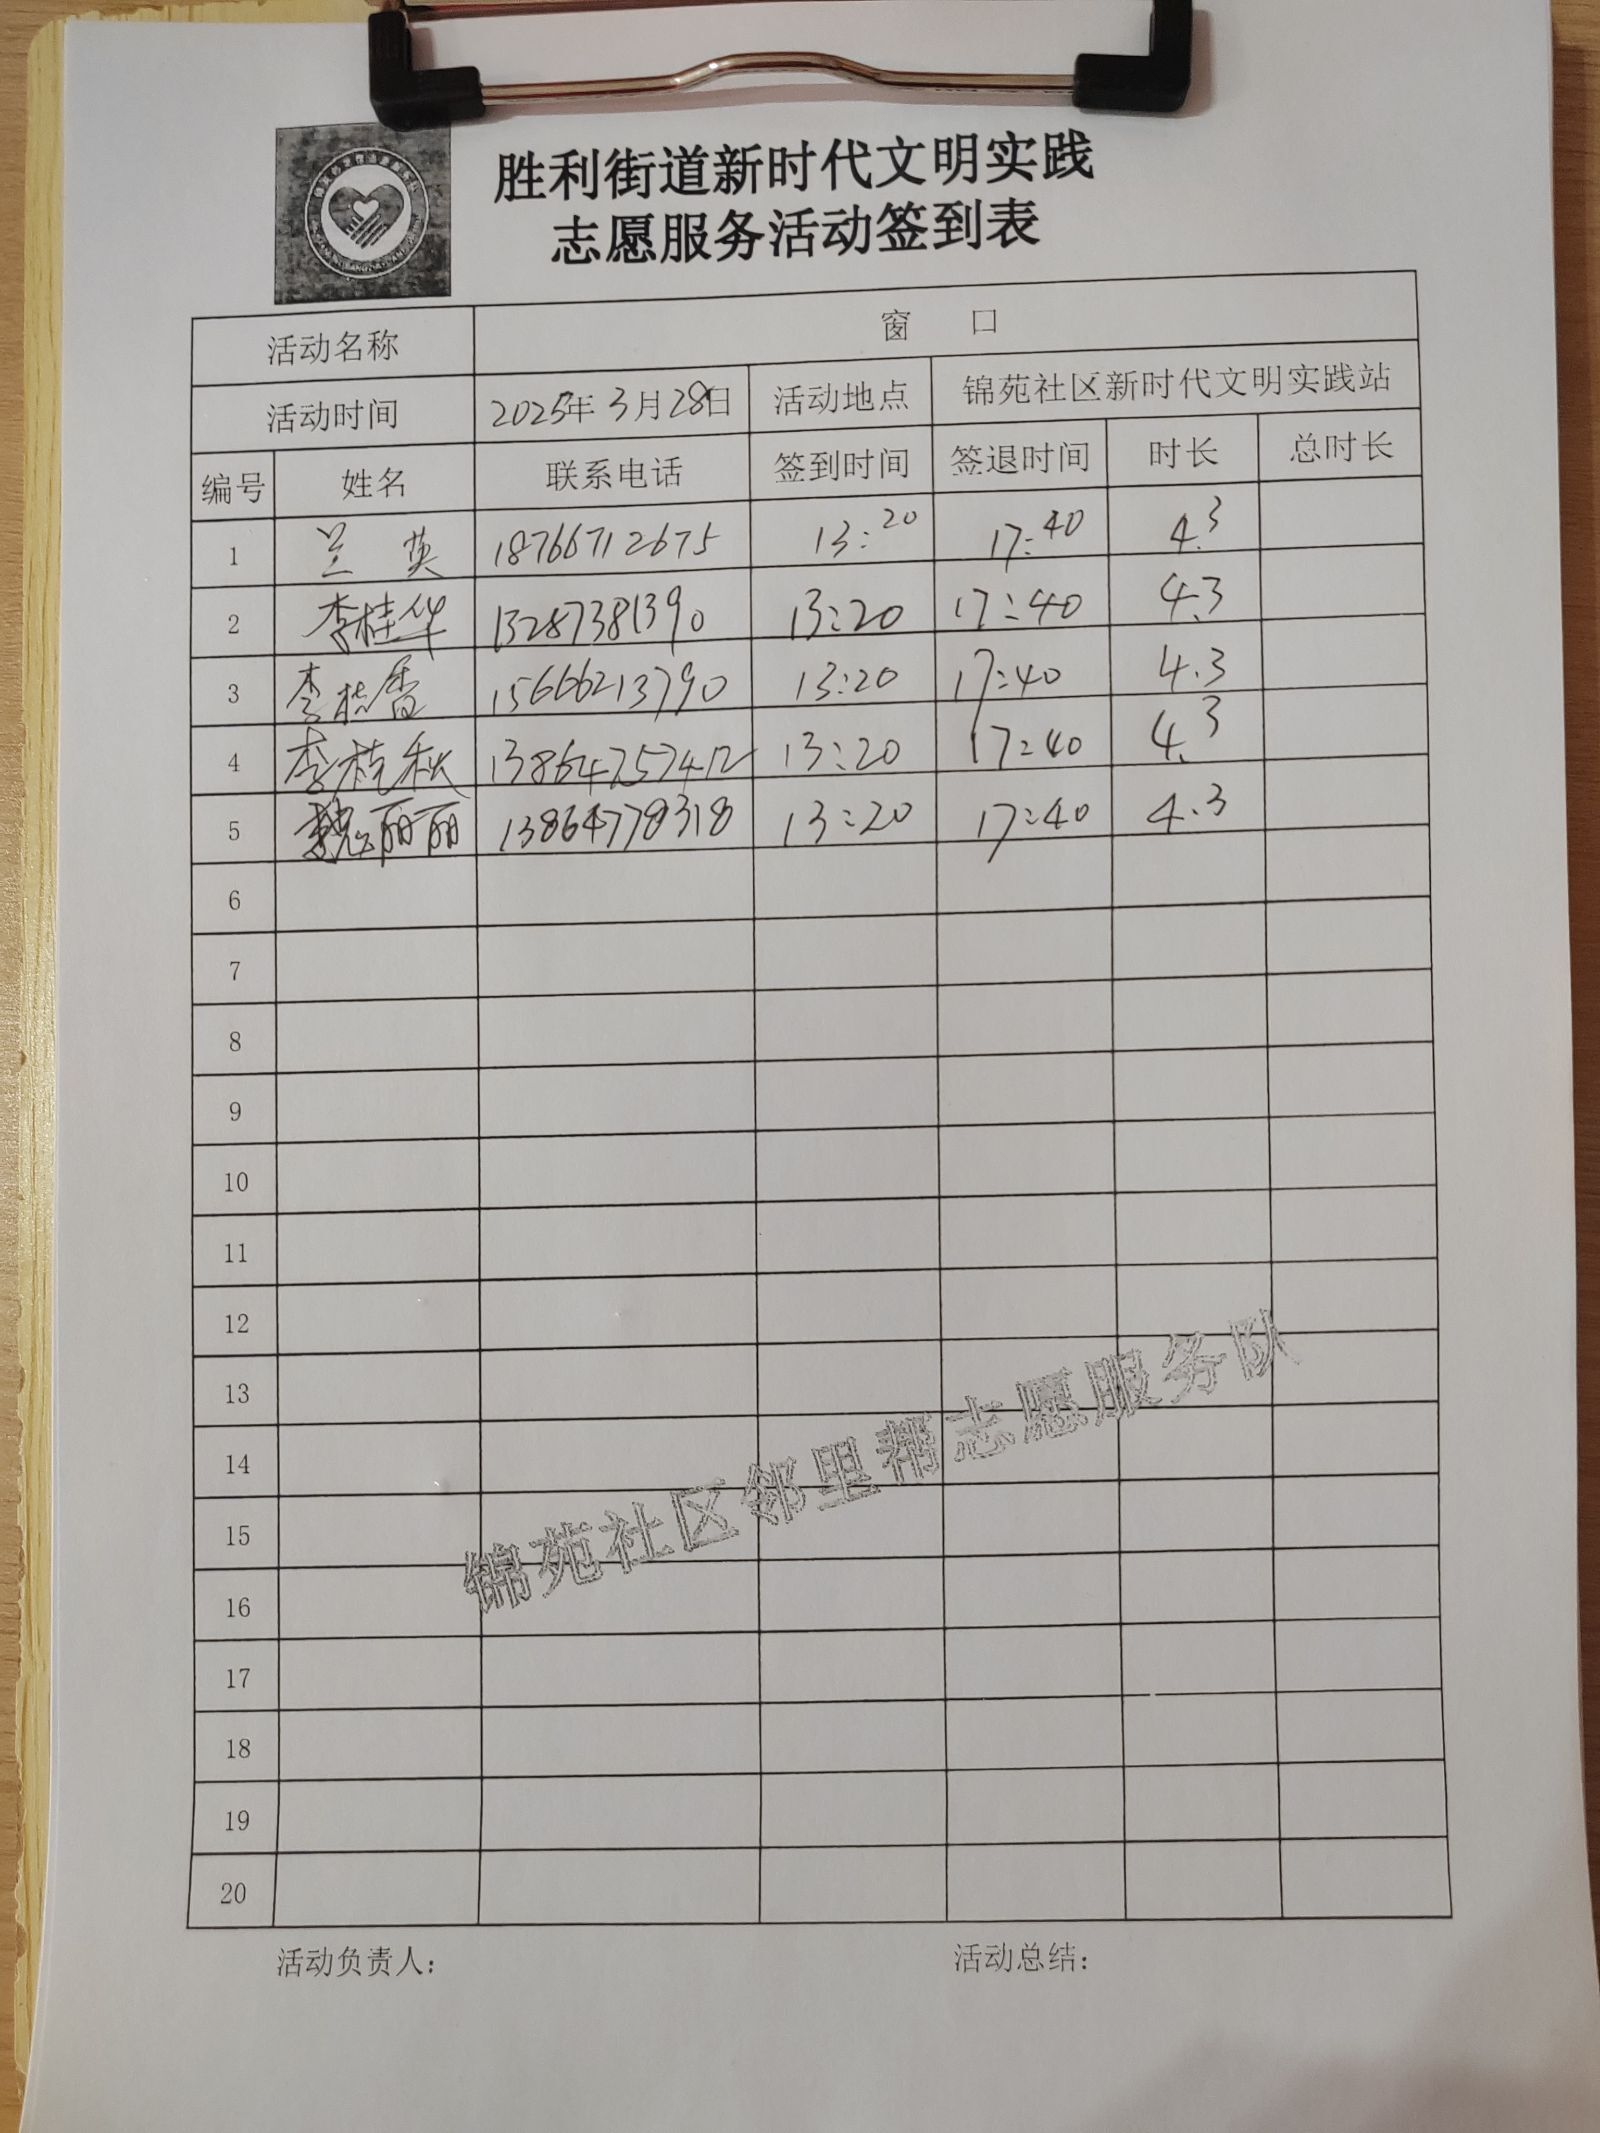 胜利街道新时代文明实践
志愿服务活动签到表
活动名称 窗 口
活动时间 2025年3月28日 活动地点 锦苑社区新时代文明实践站
编号 姓名 联系电话 签到时间 签退时间 时长 总时长
1 兰英 18766712675 13:20 17:40 4.3
2 李桂华 13287381390 13:20 17:40 4.3
3 李桂香 15666213790 13:20 17:40 4.3
4 李桂秋 13864757412 13:20 17:40 4.3
5 魏丽丽 13864778318 13:20 17:40 4.3
6
7
8
9
10
11
12
13
14
15
16
17
18
19
20
锦苑社区邻里帮志愿服务队
活动负责人: 活动总结: